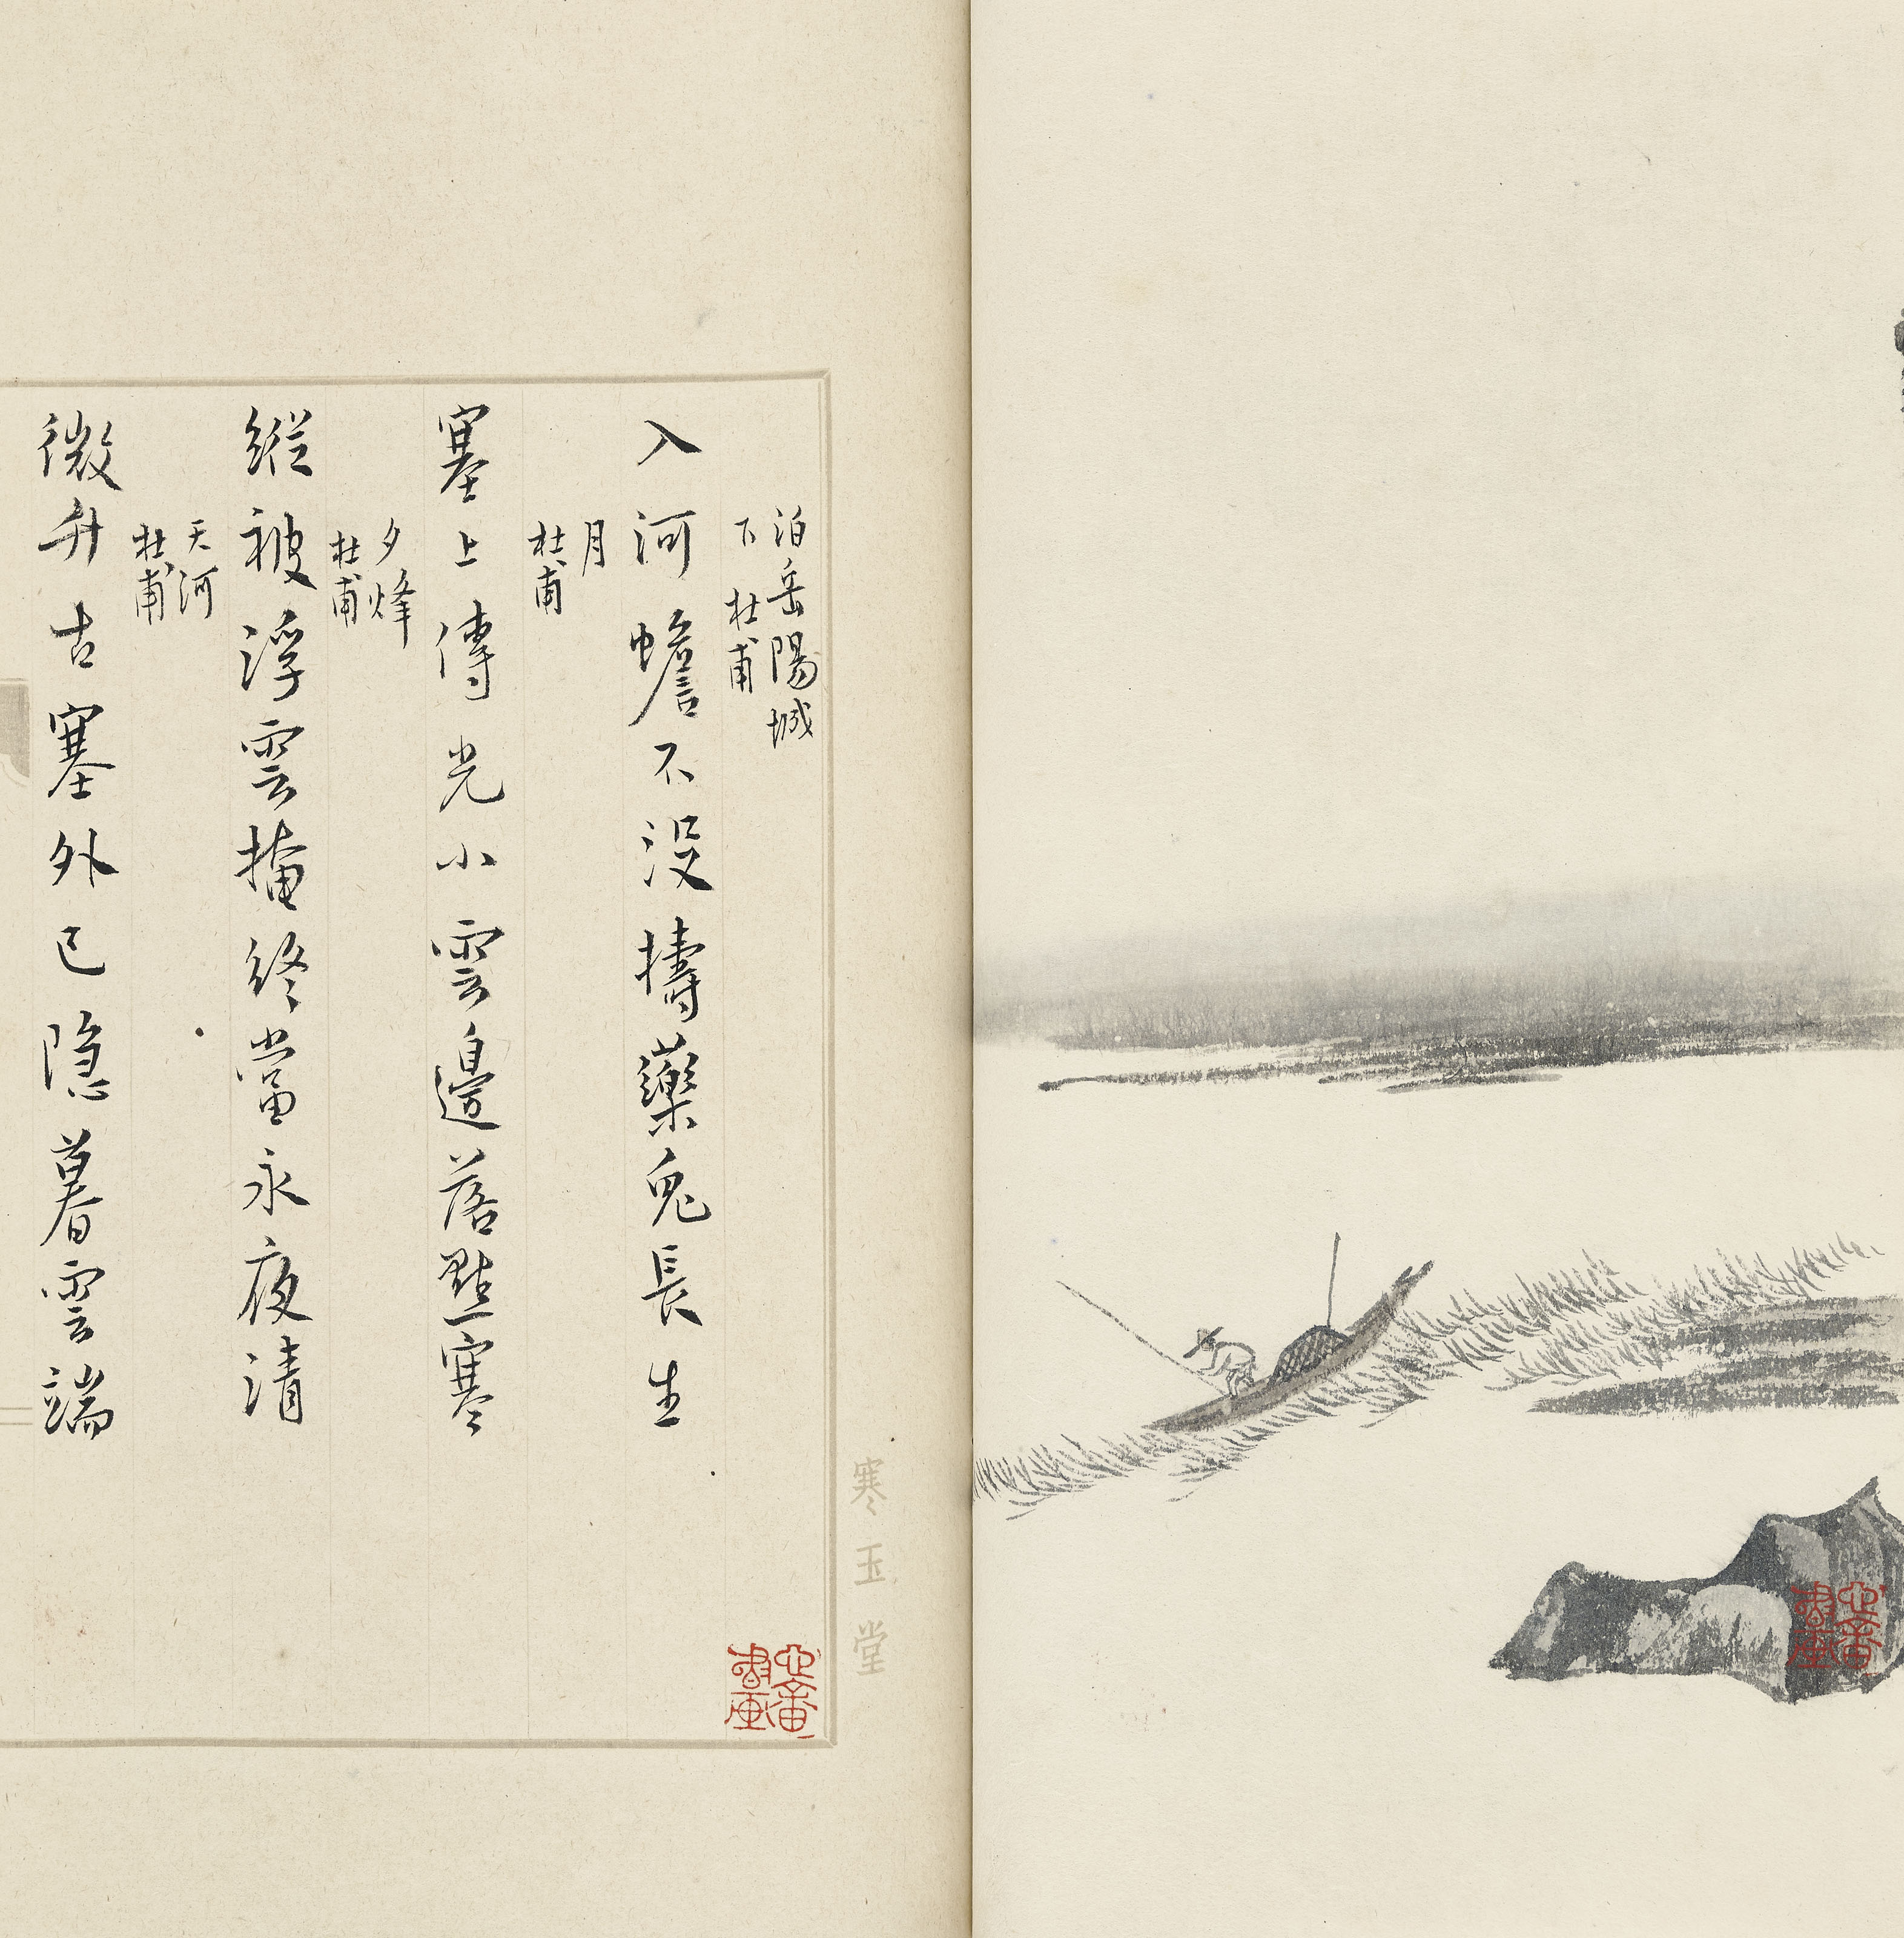 泊岳陽城
下 杜甫
入河蟾不沒擣藥兔長生
月
杜甫
塞上傳光小雲邊落點寒
夕烽
杜甫
縱被浮雲掩終當永夜清
天河
杜甫
微升古塞外已隱暮雲端
寒玉堂
心畬
書畫
心畬
書畫